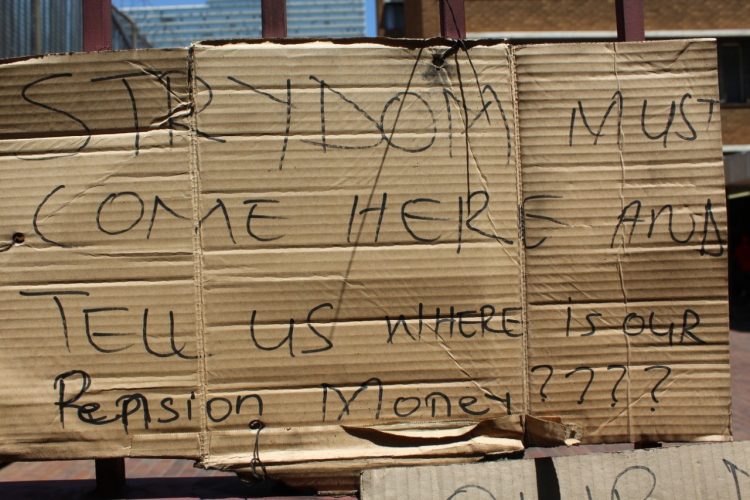 STRYDOM MUST
COME HERE AND
TELL US WHERE IS OUR
Pension Money????
OUR